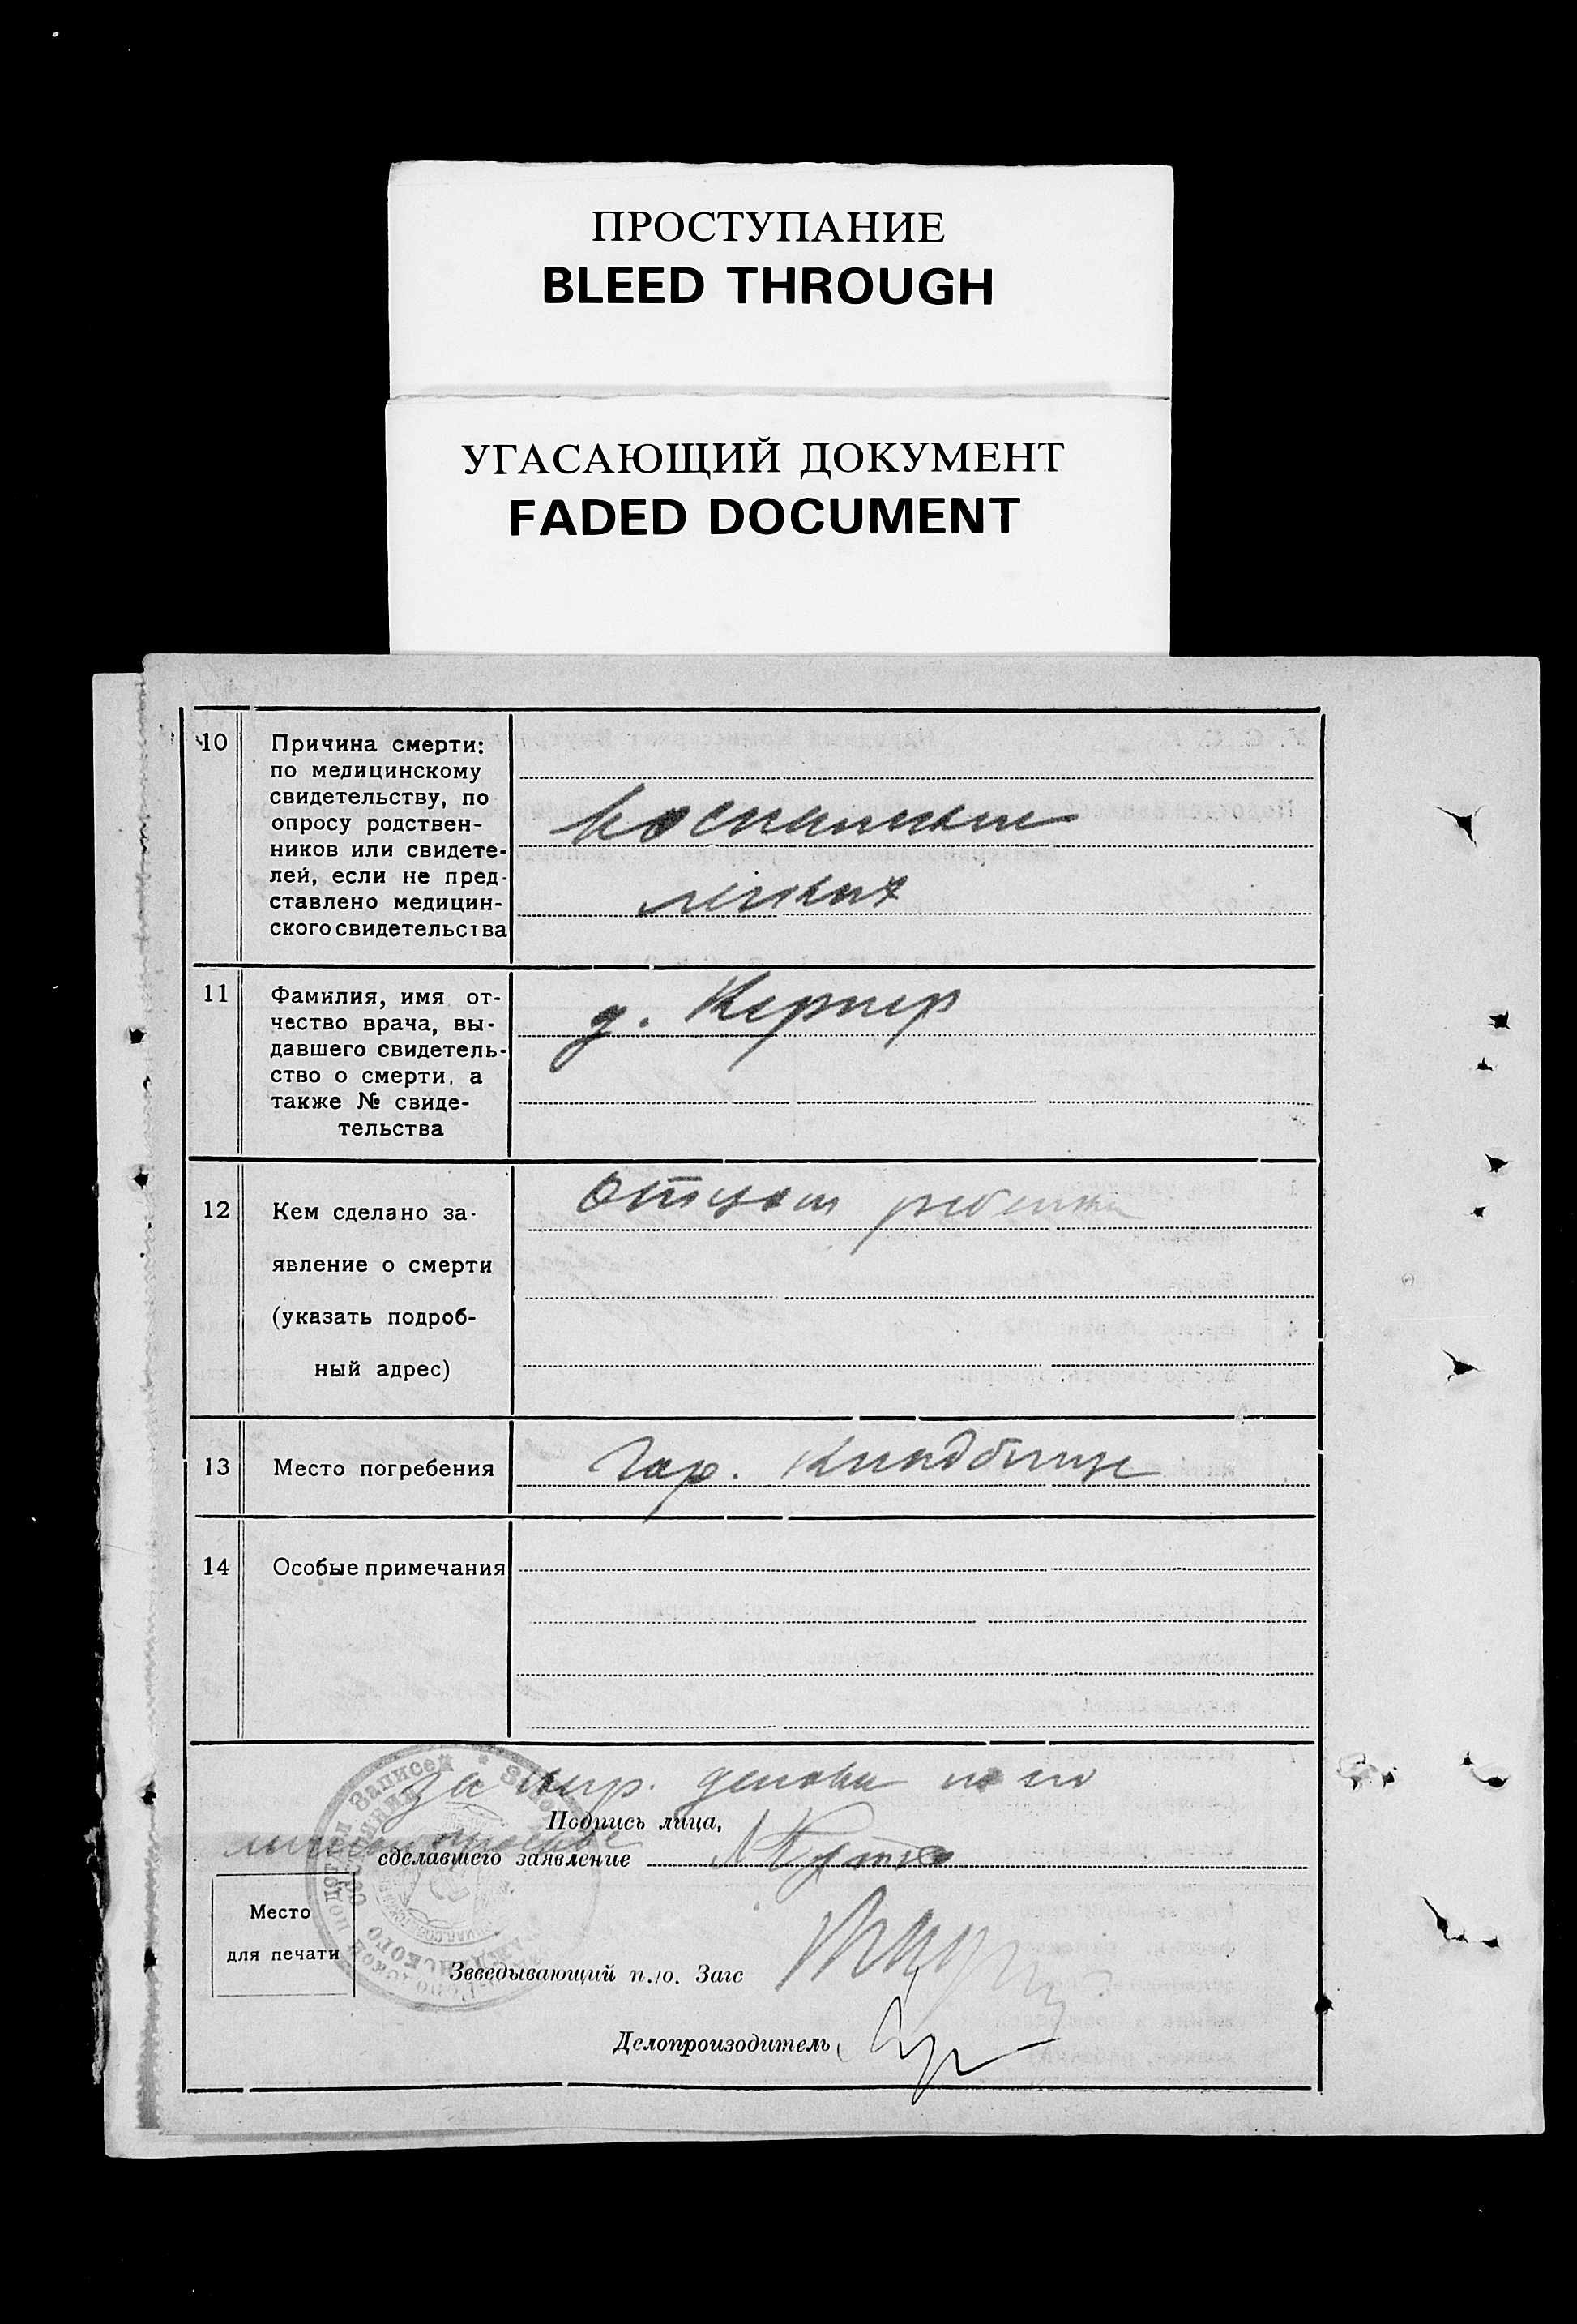 ПРОСТУПАНИЕ
BLEED THROUGH
УГАСАЮЩИЙ ДОКУМЕНТ
FADED DOCUMENT
10
Причина смерти:
по медицинскому
свидетельству, по
опросу родствен-
ников или свидете-
лей, если не пред-
ставлено медицин-
ского свидетельства
воспаление
легких
11
Фамилия, имя от-
чество врача, вы-
давшего свидетель-
ство о смерти, а
также № свиде-
тельства
д. Кернер
12
Кем сделано за-
явление о смерти
(указать подроб-
ный адрес)
отцом ребенка
13
Место погребения
Гор. кладбище
14
Особые примечания
за негр.
Подпись лица,
сделавшего заявление
Место
для печати
Зaведывающий п./о. Загс
Делопроизодитель